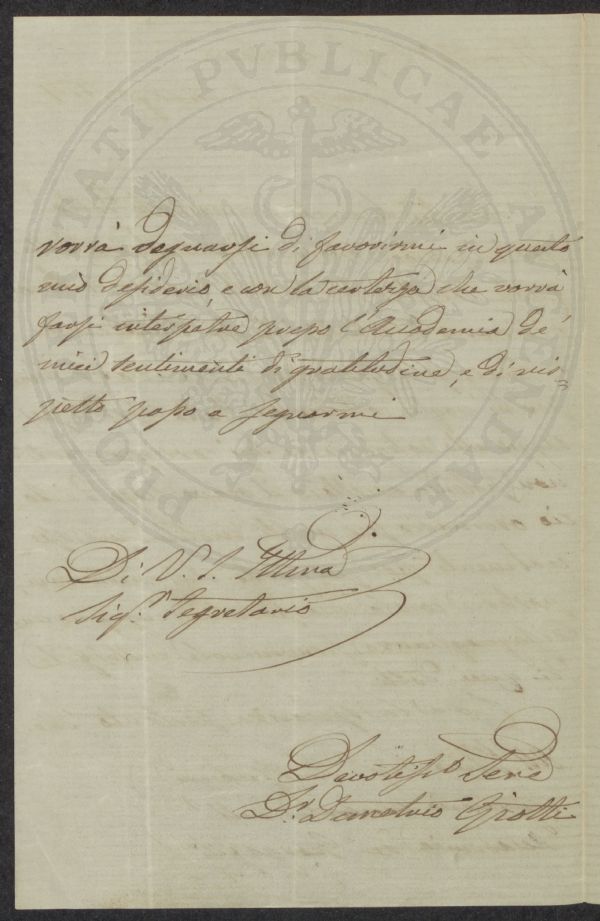 PROSPERITATI PVBLICAE AVGENDAE
vorrà degnarsi di favorirmi in questo
mio desiderio, e con la certezza che vorrà
farsi interpetre presso l'Accademia de'
miei sentimenti di gratitudine, e di ris=
petto passo a segnarmi
Di V. S. Illma
Sigr. Segretario
Devotisso Serv
Dr.